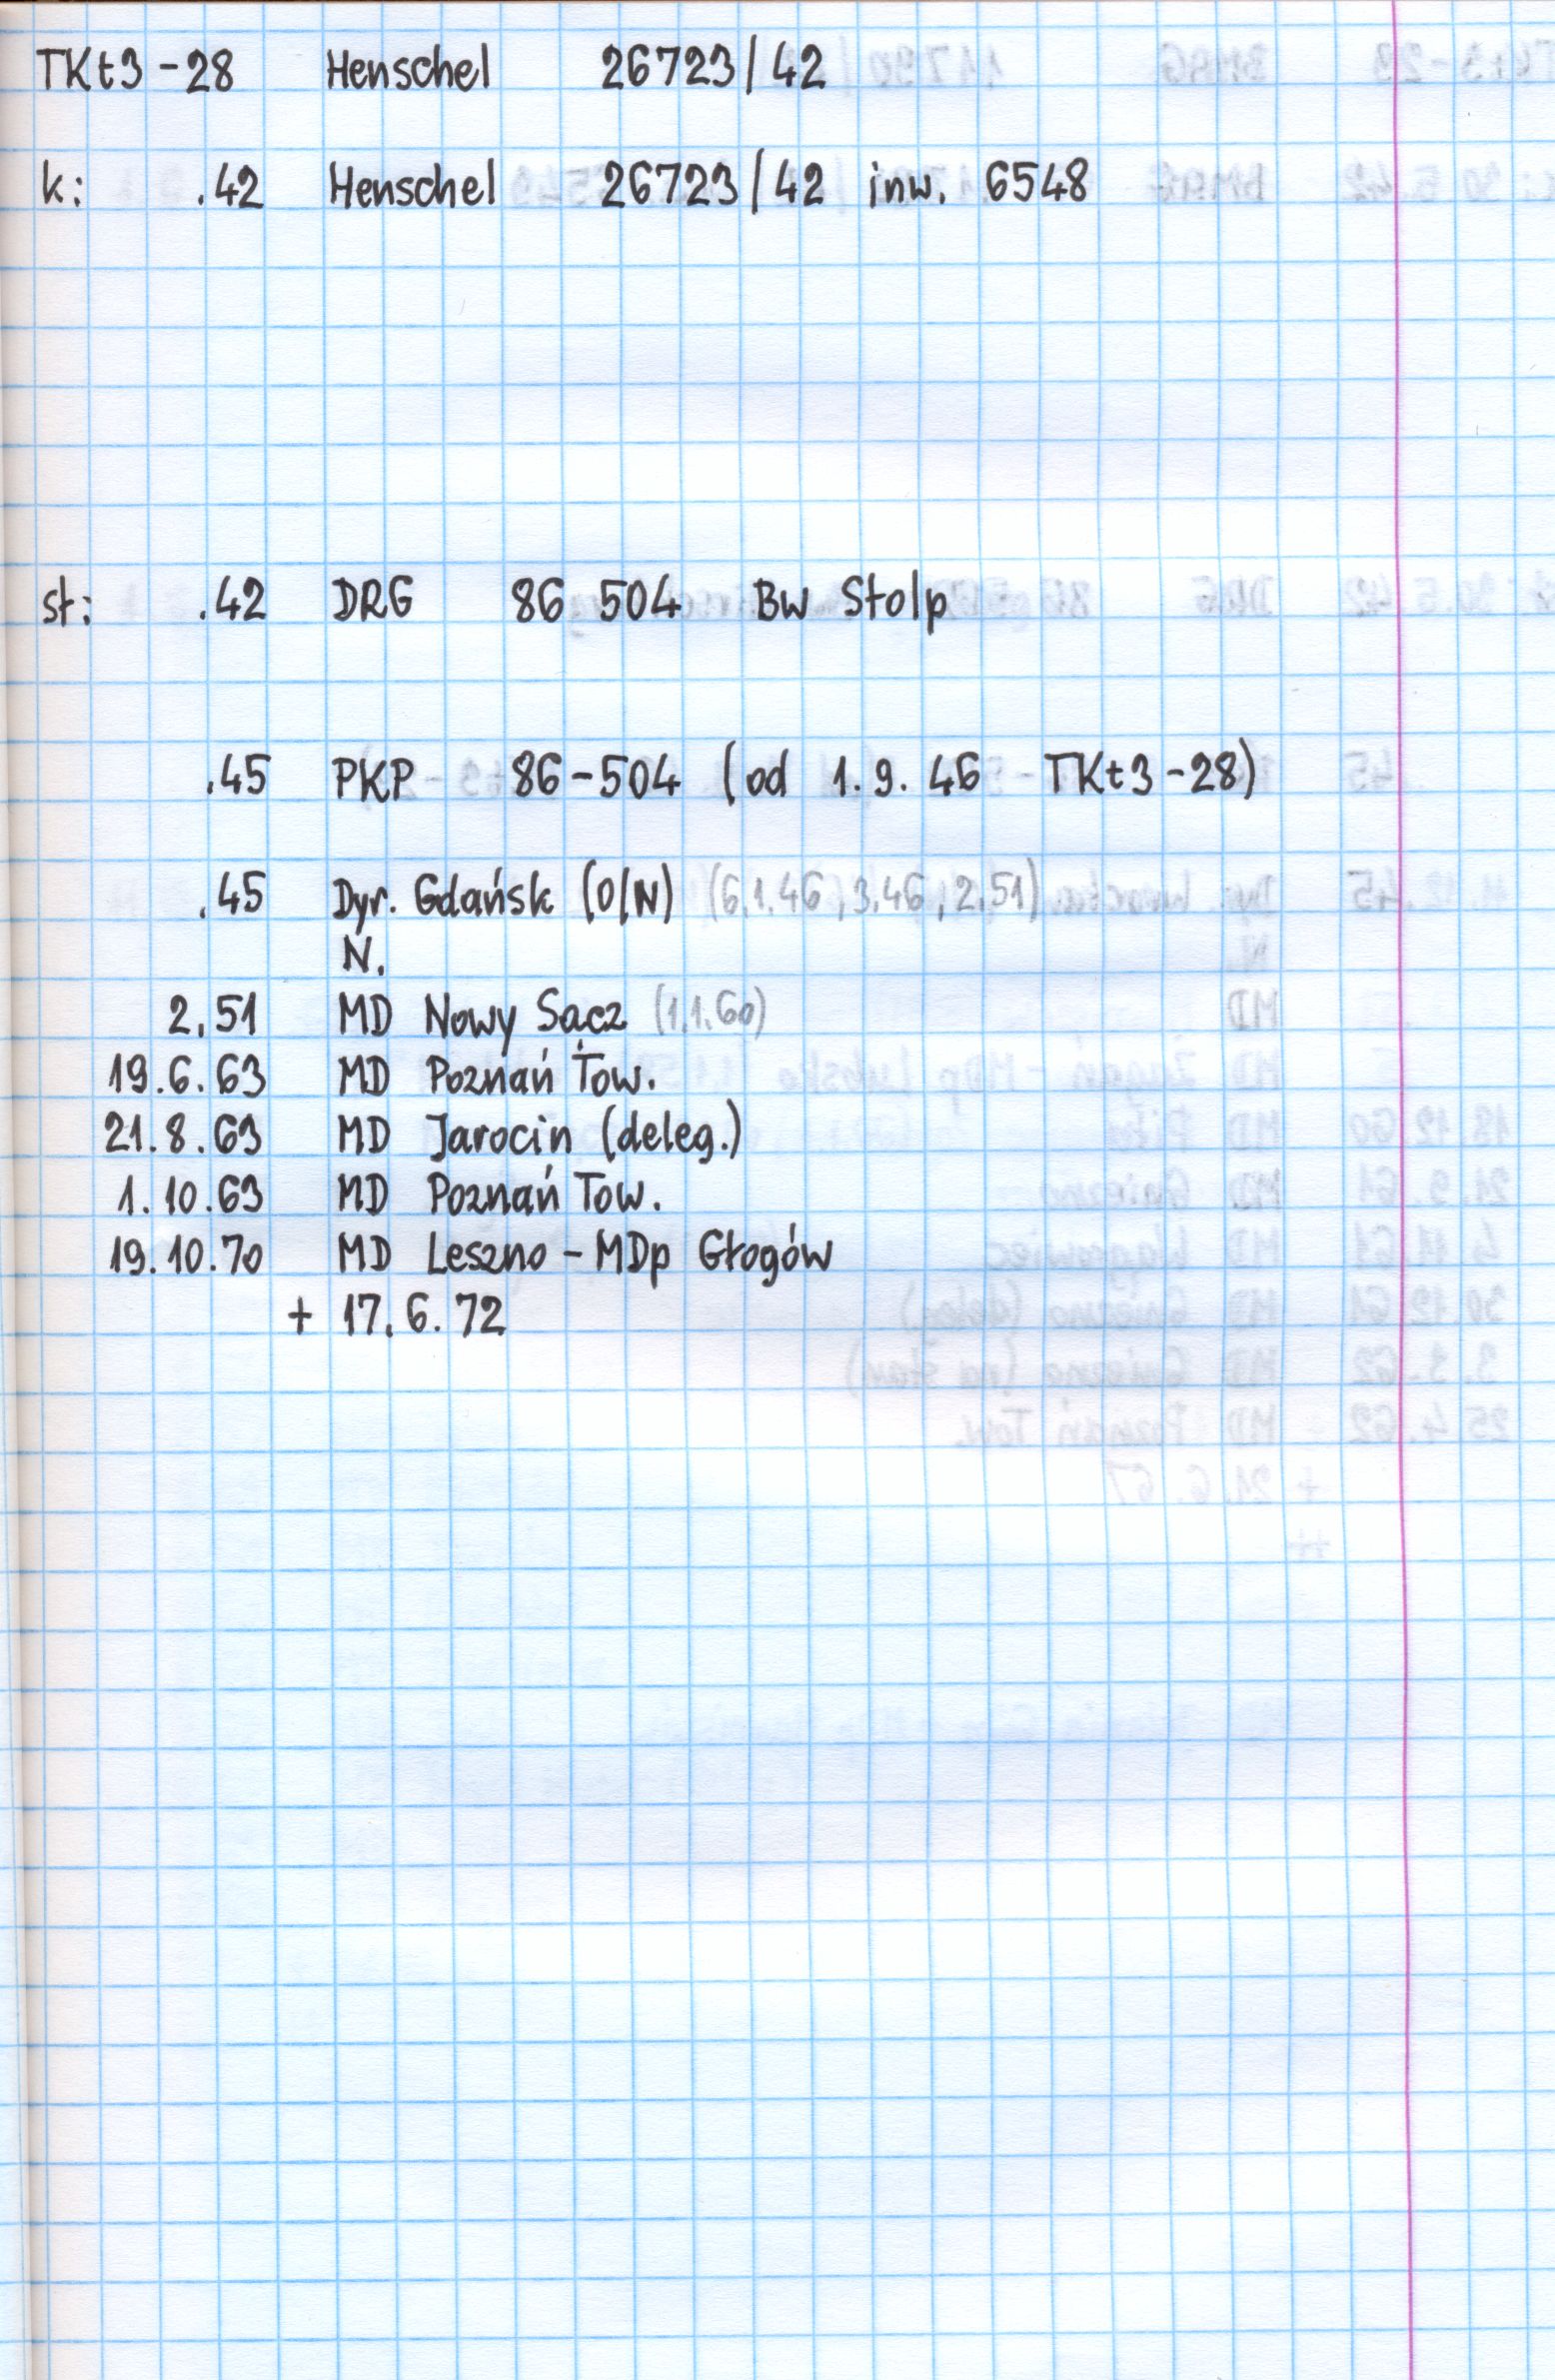 TKt3-28 Henschel 26723/42
k: .42 Henschel 26723/42 inw. 6548
st: .42 DRG 86 504 Bw Stolp
.45 PKP 86-504 (od 1.9.46 TKt3-28)
.45 Dyr. Gdańsk (O/N) (6.1.46, 3.46, 2.51)
N.
2.51 MD Nowy Sącz (1.1.60)
19.6.63 MD Poznań Tow.
21.8.63 MD Jarocin (deleg.)
1.10.63 MD Poznań Tow.
19.10.70 MD Leszno - MDp Głogów
+ 17.6.72